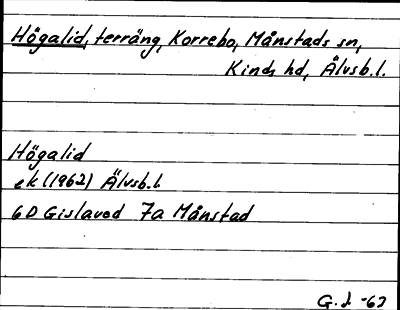 Högalid, terräng, Korrebo, Månstads sn,
Kinds hd, Älvsb.l.
Högalid
ek (1962) Älvsb.l
6D Gislaved 7a Månstad
G.J. -63